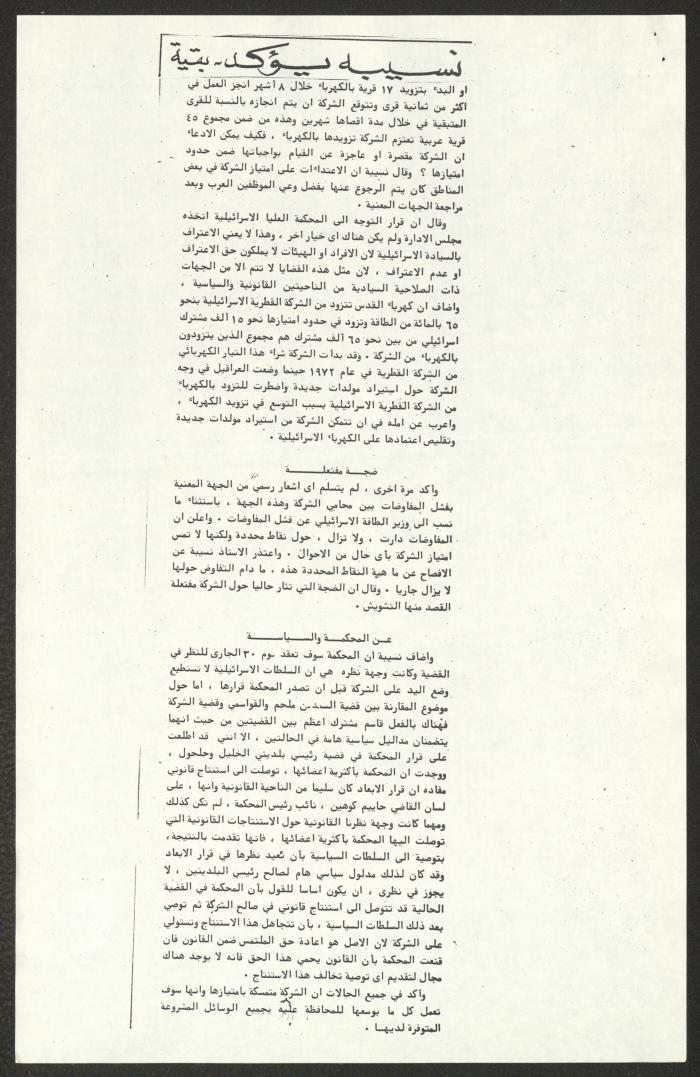 نسيبه يؤكد ـ بقية
او البدء بتزويد ١٧ قرية بالكهرباء خلال ٨ أشهر انجز العمل في
اكثر من ثمانية قرى وتتوقع الشركة ان يتم انجازه بالنسبة للقرى
المتبقية في خلال مدة اقصاها شهرين وهذه من ضمن مجموع ٤٥
قرية عربية تعتزم الشركة تزويدها بالكهرباء ، فكيف يمكن الادعاء
ان الشركة مقصرة او عاجزة عن القيام بواجباتها ضمن حدود
امتيازها ؟ وقال نسيبة ان الاعتداءات على امتياز الشركة في بعض
المناطق كان يتم الرجوع عنها بفضل وعي الموظفين العرب وبعد
مراجعة الجهات المعنية .
وقال ان قرار التوجه الى المحكمة العليا الاسرائيلية اتخذه
مجلس الادارة ولم يكن هناك اى خيار اخر ، وهذا لا يعني الاعتراف
بالسيادة الاسرائيلية لان الافراد او الهيئات لا يملكون حق الاعتراف
او عدم الاعتراف ، لان مثل هذه القضايا لا تتم الا من الجهات
ذات الصلاحية السيادية من الناحيتين القانونية والسياسية ،
واضاف ان كهرباء القدس تتزود من الشركة القطرية الاسرائيلية بنحو
٦٥ بالمائة من الطاقة وتزود في حدود امتيازها نحو ١٥ ألف مشترك
اسرائيلي من بين نحو ٦٥ ألف مشترك هم مجموع الذين يتزودون
بالكهرباء من الشركة . وقد بدأت الشركة شراء هذا التيار الكهربائي
من الشركة القطرية في عام ١٩٧٢ حينما وضعت العراقيل في وجه
الشركة حول استيراد مولدات جديدة واضطرت للتزود بالكهرباء
من الشركة القطرية الاسرائيلية بسبب التوسع في تزويد الكهرباء ،
واعرب عن امله في ان تتمكن الشركة من استيراد مولدات جديدة
وتقليص اعتمادها على الكهرباء الاسرائيلية .
ضجـة مفتعلـــة
وأكد مرة اخرى ، لم يتسلم اى اشعار رسمي من الجهة المعنية
بفشل المفاوضات بين محامي الشركة وهذه الجهة ، باستثناء ما
نسب الى وزير الطاقة الاسرائيلي عن فشل المفاوضات . واعلن ان
المفاوضات دارت ، ولا تزال ، حول نقاط محددة ولكنها لا تمس
امتياز الشركة بأى حال من الاحوال . واعتذر الاستاذ نسيبة عن
الافصاح عن ما هية النقاط المحددة هذه ، ما دام التفاوض حولها
لا يزال جاريا . وقال ان الضجة التي تثار حاليا حول الشركة مفتعلة
القصد منها التشويش .
عـن المحكمــة والسيـاســـة
واضاف نسيبة ان المحكمة سوف تعقد يوم ٣٠ الجارى للنظر في
القضية وكانت وجهة نظره هي ان السلطات الاسرائيلية لا تستطيع
وضع اليد على الشركة قبل ان تصدر المحكمة قرارها ، اما حول
موضوع المقارنة بين قضية السيدين ملحم والقواسمي وقضية الشركة
فهناك بالفعل قاسم مشترك اعظم بين القضيتين من حيث انهما
يتضمنان مداليل سياسية هامة في الحالتين ، الا انني قد اطلعت
على قرار المحكمة في قضية رئيسي بلديتي الخليل وحلحول ،
ووجدت ان المحكمة بأكثرية اعضائها ، توصلت الى استنتاج قانوني
مفاده ان قرار الابعاد كان سليما من الناحية القانونية وانها ، على
لسان القاضي حاييم كوهين ، نائب رئيس المحكمة ، لم تكن كذلك
ومهما كانت وجهة نظرنا القانونية حول الاستنتاجات القانونية التي
توصلت اليها المحكمة بأكثرية اعضائها ، فانها تقدمت بالنتيجة ،
بتوصية الى السلطات السياسية بأن تعيد نظرها في قرار الابعاد
وقد كان لذلك مدلول سياسي هام لصالح رئيسي البلديتين ، لا
يجوز في نظرى ، ان يكون اساسا للقول بأن المحكمة في القضية
الحالية قد تتوصل الى استنتاج قانوني في صالح الشركة ثم توصي
بعد ذلك السلطات السياسية ، بأن تتجاهل هذا الاستنتاج وتستولي
على الشركة لان الاصل هو اعادة حق الملتمس ضمن القانون فان
قنعت المحكمة بأن القانون يحمي هذا الحق فانه لا يوجد هناك
مجال لتقديم اى توصية تخالف هذا الاستنتاج .
وأكد في جميع الحالات ان الشركة متمسكة بامتيازها وانها سوف
تعمل كل ما بوسعها للمحافظة عليه بجميع الوسائل المشروعة
المتوفرة لديهـا .